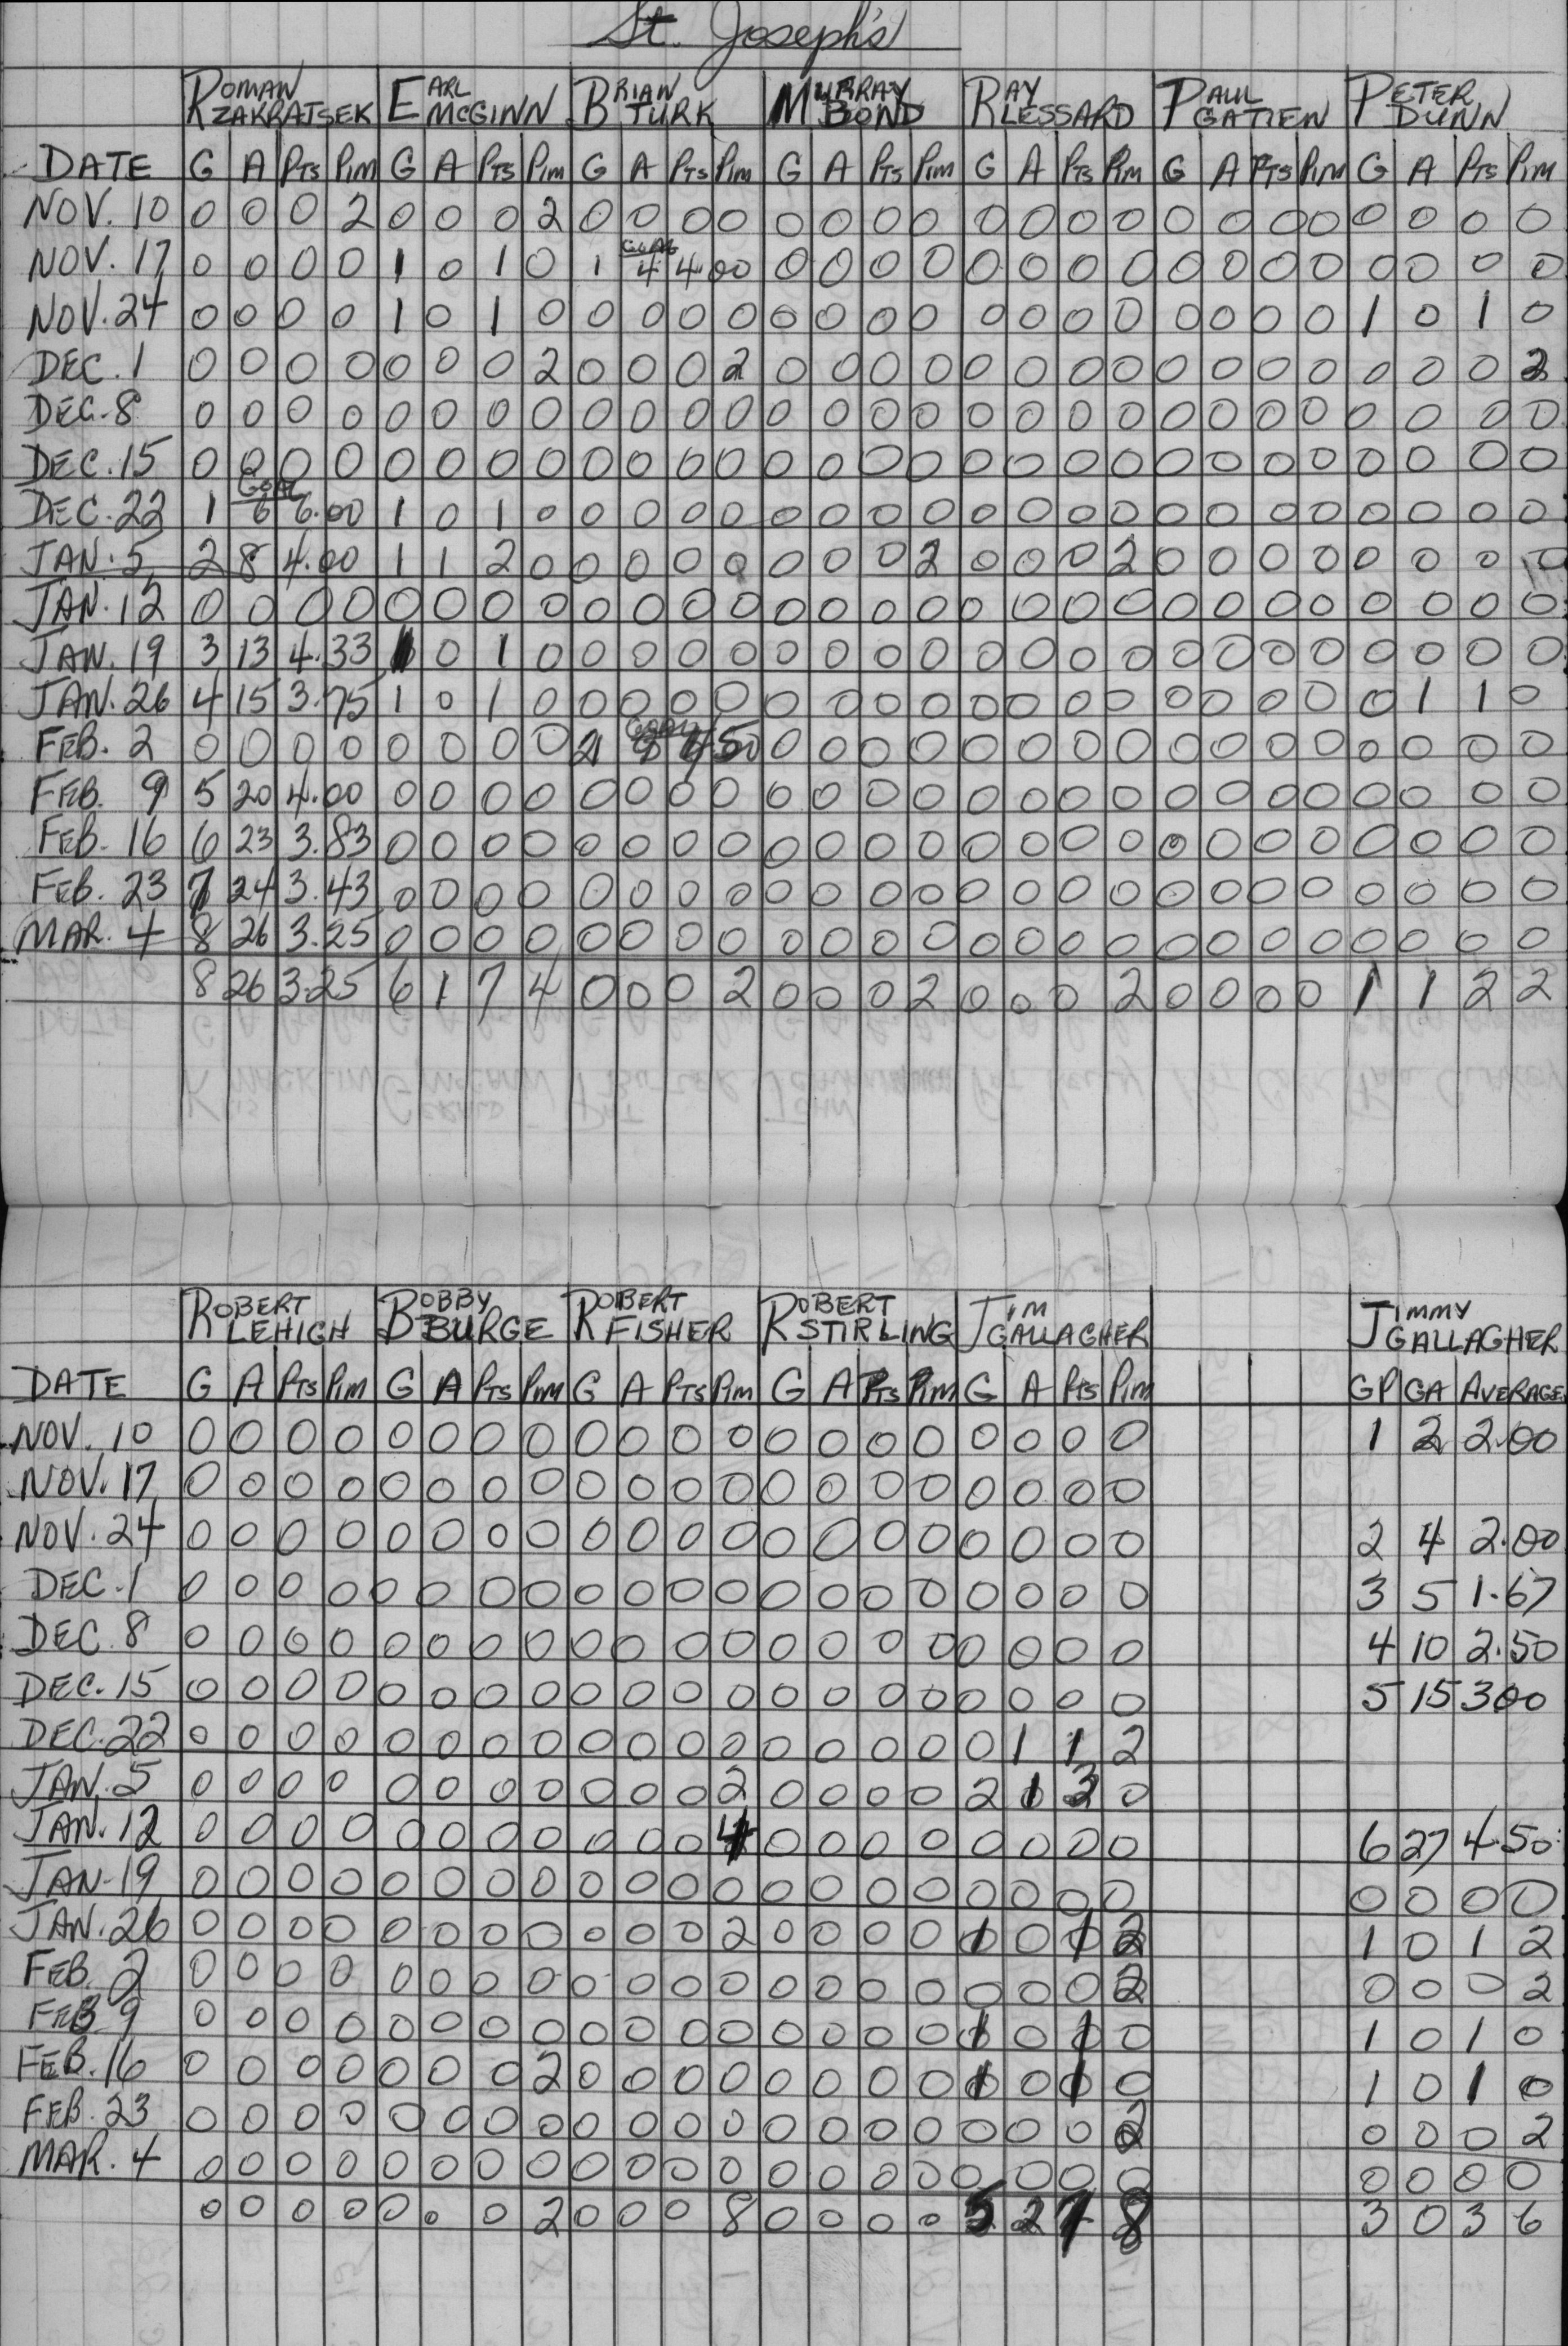 St. Joseph's
ROMAN ZAKRATSEK EARL McGINN BRIAN TURK MURRAY BOND RAY LESSARD PAUL GATIEN PETER DUNN
DATE G A PTS PIM G A PTS PIM G A PTS PIM G A PTS PIM G A PTS PIM G A PTS PIM G A PTS PIM
NOV. 10 0 0 0 2 0 0 0 2 0 0 0 0 0 0 0 0 0 0 0 0 0 0 0 0 0 0 0 0
GOAL
NOV. 17 0 0 0 0 1 0 1 0 1 4 4 00 0 0 0 0 0 0 0 0 0 0 0 0 0 0 0 0
NOV. 24 0 0 0 0 1 0 1 0 0 0 0 0 0 0 0 0 0 0 0 0 0 0 0 0 1 0 1 0
DEC. 1 0 0 0 0 0 0 0 2 0 0 0 2 0 0 0 0 0 0 0 0 0 0 0 0 0 0 0 2
DEC. 8 0 0 0 0 0 0 0 0 0 0 0 0 0 0 0 0 0 0 0 0 0 0 0 0 0 0 0 0
DEC. 15 0 0 0 0 0 0 0 0 0 0 0 0 0 0 0 0 0 0 0 0 0 0 0 0 0 0 0 0
GOAL
DEC. 22 1 6 6.00 1 0 1 0 0 0 0 0 0 0 0 0 0 0 0 0 0 0 0 0 0 0 0 0
JAN. 5 2 8 4.00 1 1 2 0 0 0 0 0 0 0 0 2 0 0 0 2 0 0 0 0 0 0 0 0
JAN. 12 0 0 0 0 0 0 0 0 0 0 0 0 0 0 0 0 0 0 0 0 0 0 0 0 0 0 0 0
JAN. 19 3 13 4.33 1 0 1 0 0 0 0 0 0 0 0 0 0 0 0 0 0 0 0 0 0 0 0 0
JAN. 26 4 15 3.75 1 0 1 0 0 0 0 0 0 0 0 0 0 0 0 0 0 0 0 0 0 1 1 0
GOAL
FEB. 2 0 0 0 0 0 0 0 0 2 50 0 0 0 0 0 0 0 0 0 0 0 0 0 0 0 0
FEB. 9 5 20 4.00 0 0 0 0 0 0 0 0 0 0 0 0 0 0 0 0 0 0 0 0 0 0 0 0
FEB. 16 6 23 3.83 0 0 0 0 0 0 0 0 0 0 0 0 0 0 0 0 0 0 0 0 0 0 0 0
FEB. 23 7 24 3.43 0 0 0 0 0 0 0 0 0 0 0 0 0 0 0 0 0 0 0 0 0 0 0 0
MAR. 4 8 26 3.25 0 0 0 0 0 0 0 0 0 0 0 0 0 0 0 0 0 0 0 0 0 0 0 0
8 26 3.25 6 1 7 4 0 0 0 2 0 0 0 2 0 0 0 2 0 0 0 0 1 1 2 2
ROBERT LEHIGH BOBBY BURGE ROBERT FISHER ROBERT STIRLING JIM GALLAGHER JIMMY GALLAGHER
DATE G A PTS PIM G A PTS PIM G A PTS PIM G A PTS PIM G A PTS PIM GP GA AVERAGE
NOV. 10 0 0 0 0 0 0 0 0 0 0 0 0 0 0 0 0 0 0 0 0 1 2 2.00
NOV. 17 0 0 0 0 0 0 0 0 0 0 0 0 0 0 0 0 0 0 0 0
NOV. 24 0 0 0 0 0 0 0 0 0 0 0 0 0 0 0 0 0 0 0 0 2 4 2.00
DEC. 1 0 0 0 0 0 0 0 0 0 0 0 0 0 0 0 0 0 0 0 0 3 5 1.67
DEC. 8 0 0 0 0 0 0 0 0 0 0 0 0 0 0 0 0 0 0 0 0 4 10 2.50
DEC. 15 0 0 0 0 0 0 0 0 0 0 0 0 0 0 0 0 0 0 0 0 5 15 300
DEC. 22 0 0 0 0 0 0 0 0 0 0 0 0 0 0 0 0 0 1 1 2
JAN. 5 0 0 0 0 0 0 0 0 0 0 0 2 0 0 0 0 2 1 3 0
JAN. 12 0 0 0 0 0 0 0 0 0 0 0 4 0 0 0 0 0 0 0 0 6 27 4.50
JAN. 19 0 0 0 0 0 0 0 0 0 0 0 0 0 0 0 0 0 0 0 0 0 0 0 0
JAN. 26 0 0 0 0 0 0 0 0 0 0 0 2 0 0 0 0 1 0 1 2 1 0 1 2
FEB. 2 0 0 0 0 0 0 0 0 0 0 0 0 0 0 0 0 0 0 0 2 0 0 0 2
FEB 9 0 0 0 0 0 0 0 0 0 0 0 0 0 0 0 0 1 0 1 0 1 0 1 0
FEB. 16 0 0 0 0 0 0 0 2 0 0 0 0 0 0 0 0 1 0 1 0 1 0 1 0
FEB. 23 0 0 0 0 0 0 0 0 0 0 0 0 0 0 0 0 0 0 0 2 0 0 0 2
MAR. 4 0 0 0 0 0 0 0 0 0 0 0 0 0 0 0 0 0 0 0 0 0 0 0 0
0 0 0 0 0 0 0 2 0 0 0 8 0 0 0 0 5 2 7 8 3 0 3 6